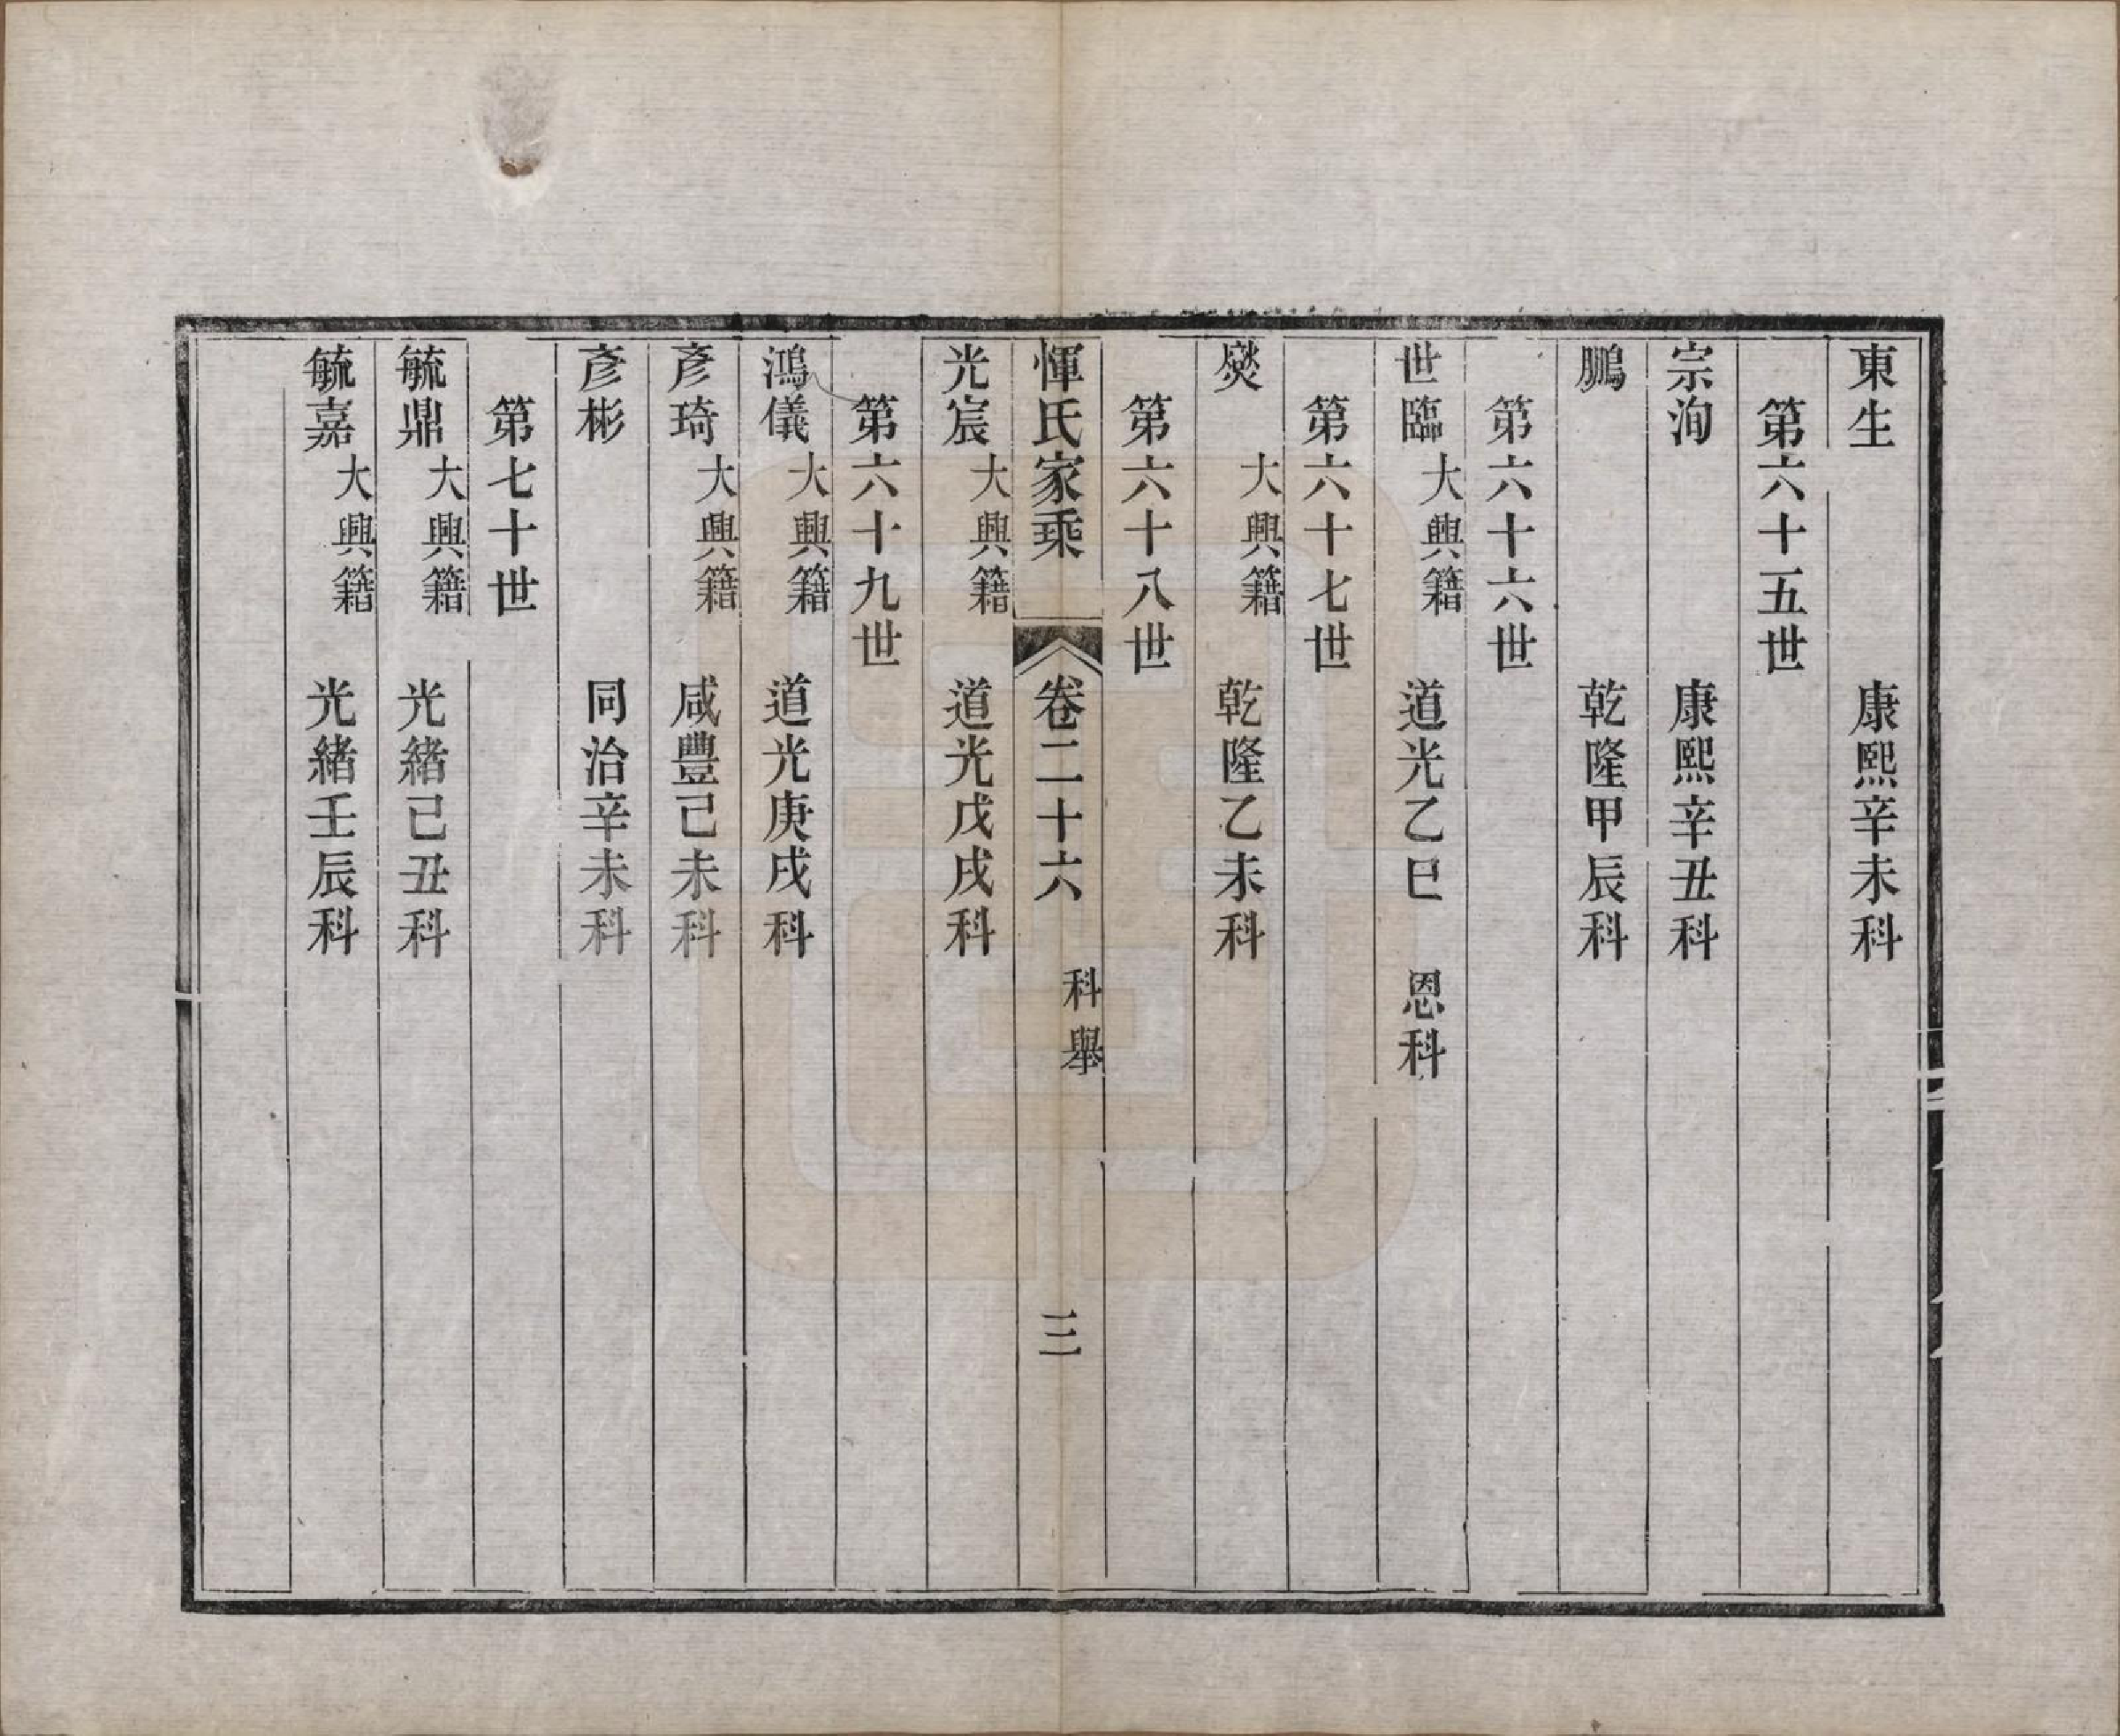 東生　康熙辛未科
第六十五世
宗洵　康熙辛丑科
鵬　乾隆甲辰科
第六十六世
世臨 大興籍　道光乙巳　恩科
第六十七世
燮 大興籍　乾隆乙未科
第六十八世
惲氏家乘　卷二十六　科舉　三
光宸 大興籍　道光戊戌科
第六十九世
鴻儀 大興籍　道光庚戌科
彥琦 大興籍　咸豐己未科
彥彬　同治辛未科
第七十世
毓鼎 大興籍　光緒己丑科
毓嘉 大興籍　光緒壬辰科